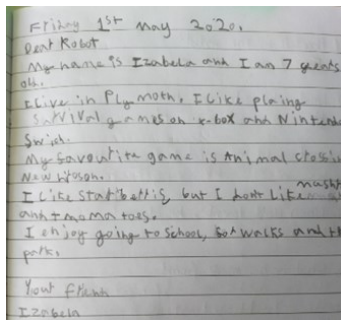 Friday 1st may 2020.
Dear Robot
My name is Izabela and I am 7 years
old.
I Live in Plymoth. I Like plaing
Survival games on x-box and Nintend
Swich.
My favourite game is Animal crossi
New
I Like but I dont Like mush
and tmomatoes.
I enjoy going to school, walks and th
park.
Your friend
Izabela